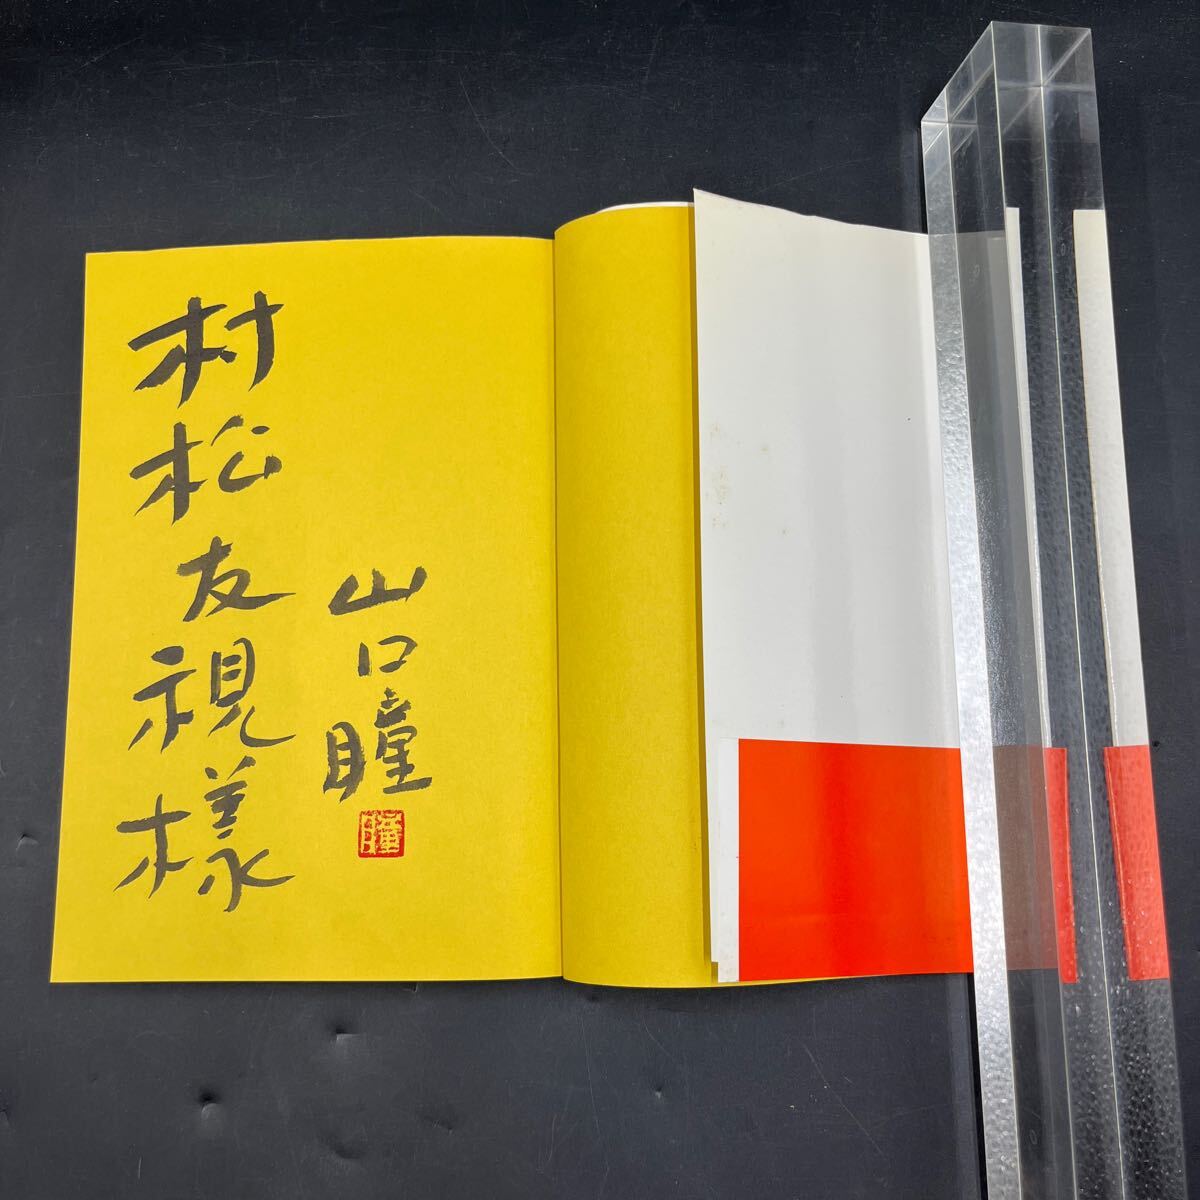 村松友視様
山口瞳
瞳